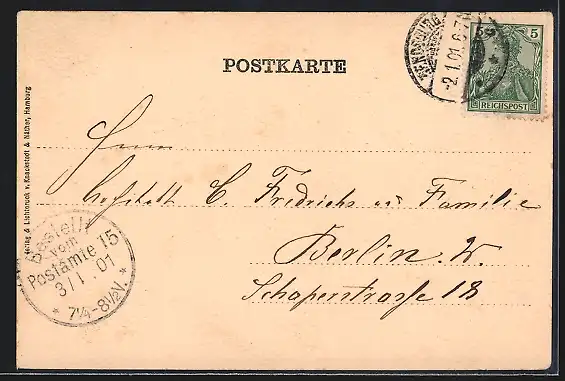 POSTKARTE
5
REICHSPOST
-2.1.01.6-7
Herrn
C. Friedrichs u. Familie
Berlin. W.
Schaperstrasse 18
Bestellt
vom
Postamte 15
3/1.01
* 7¼-8½V. *
Verlag & Lichtdruck v. Knackstedt & Näther, Hamburg